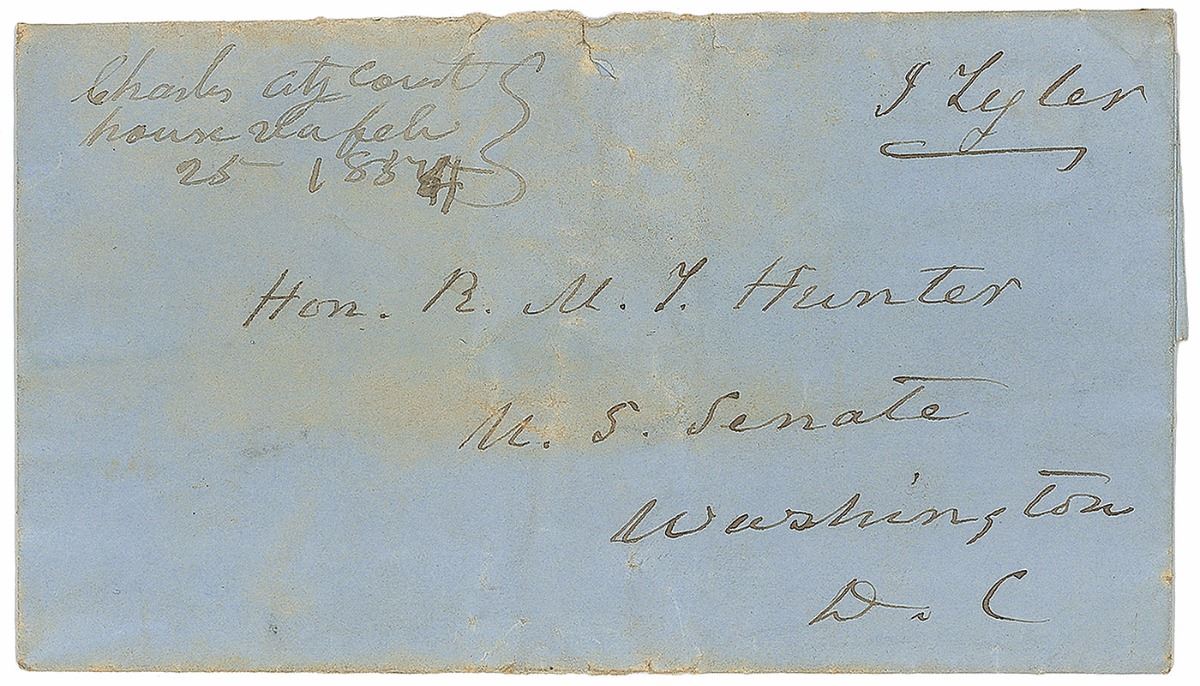 Charles City Court
house Va feb
25 1854
J Tyler
Hon. R. M. T. Hunter
U. S. Senate
Washington
D. C